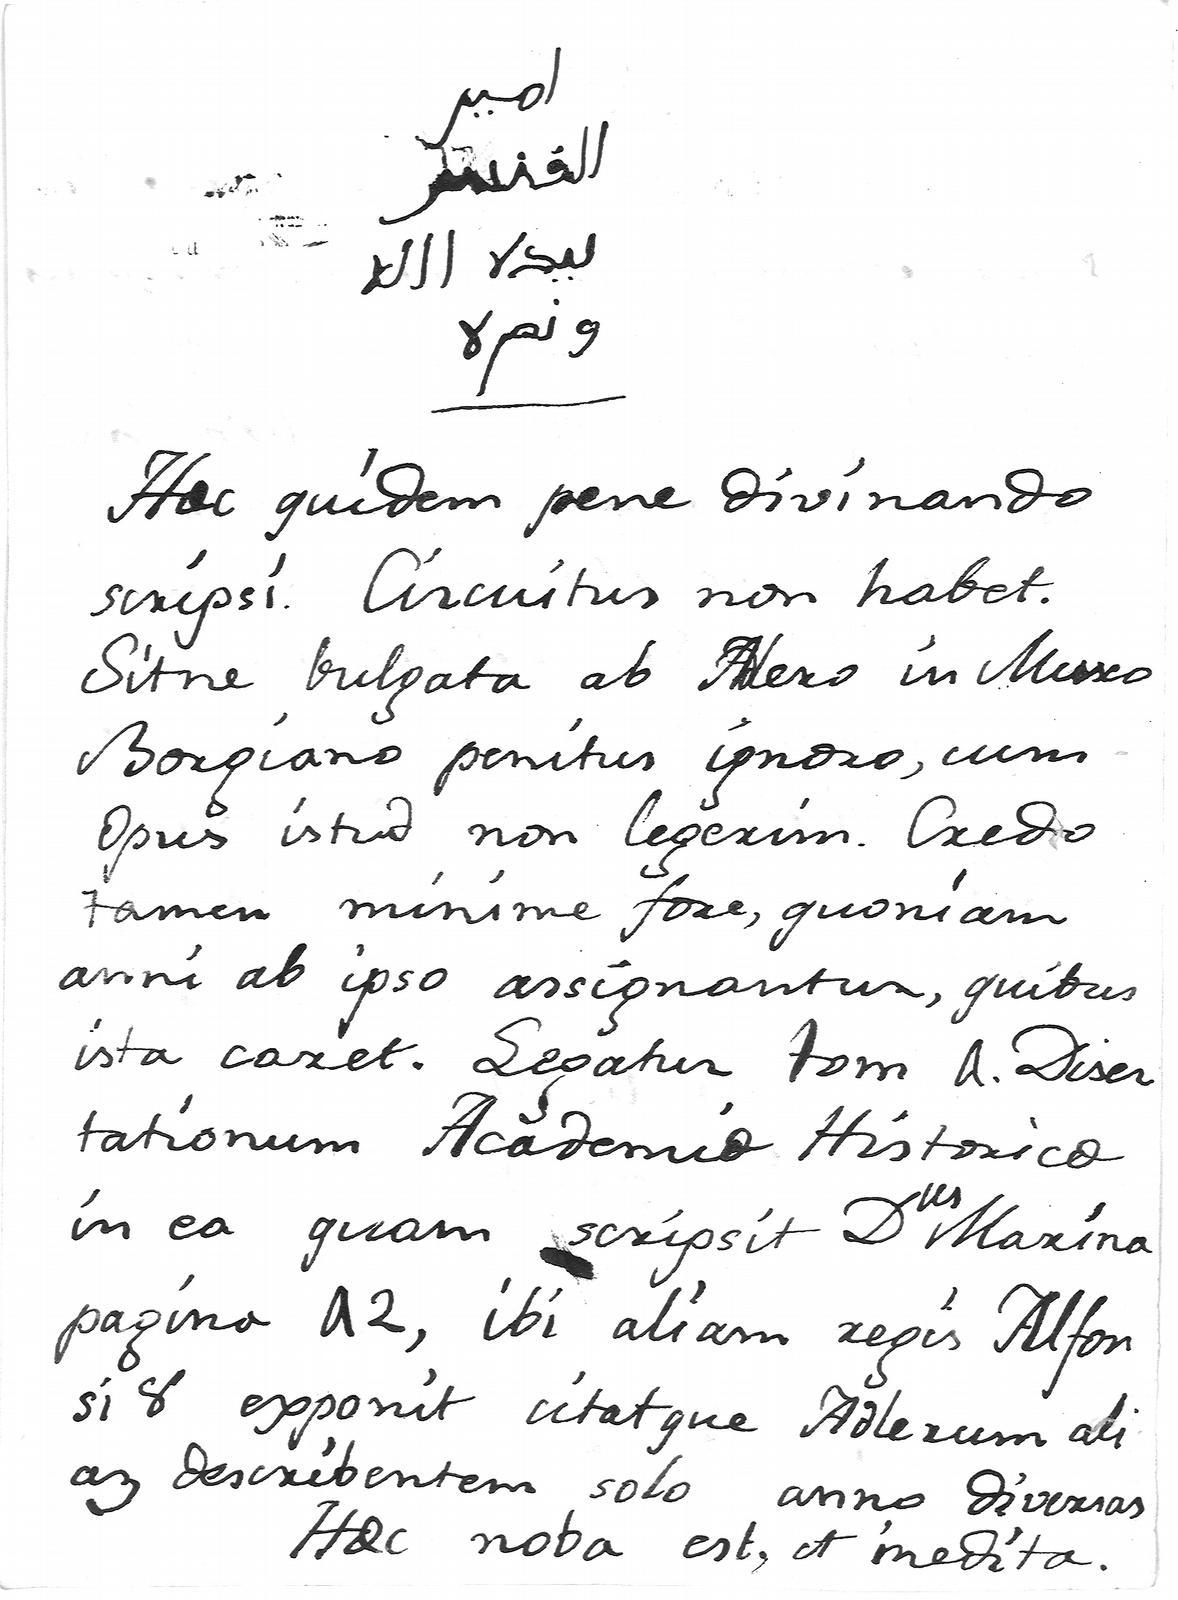 امير
القنسر
ىيدلا الله
ونصرلا
Hæc quidem pene divinando
scripsi. Circuitus non habet.
Sitne bulgata ab Adlero in Museo
Borgiano penitus ignoro, cum
Opus istud non legerim. Credo
tamen minime fore, quoniam
anni ab ipso assignantur, quibus
ista caret. Legatur tom 1. Diser
tationum Academiæ Historicæ
in ea quam scripsit Dnus Marina
pagina 12, ibi aliam regis Alfon
si 8 exponit citatque Adlerum ali
as describentem solo anno diversas
Hæc noba est, et inedita.